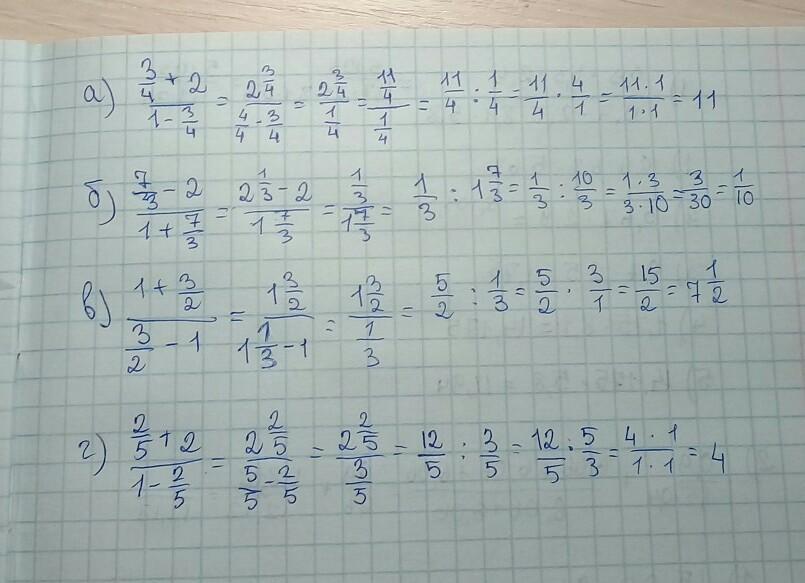 а) (3/4 + 2)/(1 - 3/4) = (2 3/4)/(4/4 - 3/4) = (2 3/4)/(1/4) = (11/4)/(1/4) = 11/4 : 1/4 = 11/4 · 4/1 = (11 · 1)/(1 · 1) = 11
б) (7/3 - 2)/(1 + 7/3) = (2 1/3 - 2)/(1 7/3) = (1/3)/(1 7/3) = 1/3 : 1 7/3 = 1/3 : 10/3 = (1 · 3)/(3 · 10) = 3/30 = 1/10
в) (1 + 3/2)/(3/2 - 1) = (1 3/2)/(1 1/3 - 1) = (1 3/2)/(1/3) = 5/2 : 1/3 = 5/2 · 3/1 = 15/2 = 7 1/2
г) (2/5 + 2)/(1 - 2/5) = (2 2/5)/(5/5 - 2/5) = (2 2/5)/(3/5) = 12/5 : 3/5 = 12/5 · 5/3 = (4 · 1)/(1 · 1) = 4